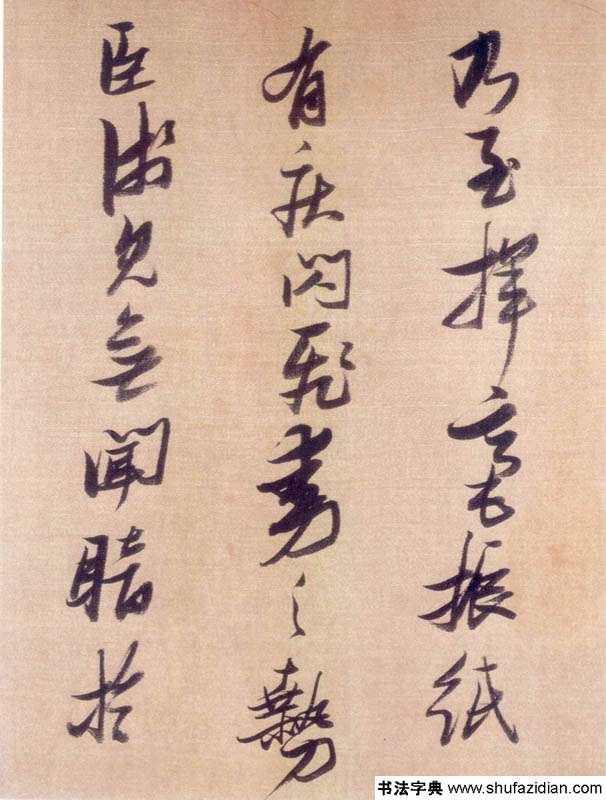 乃至揮毫振紙
有疾閃飛動之勢
臣淺見無聞暗於
书法字典 www.shufazidian.com